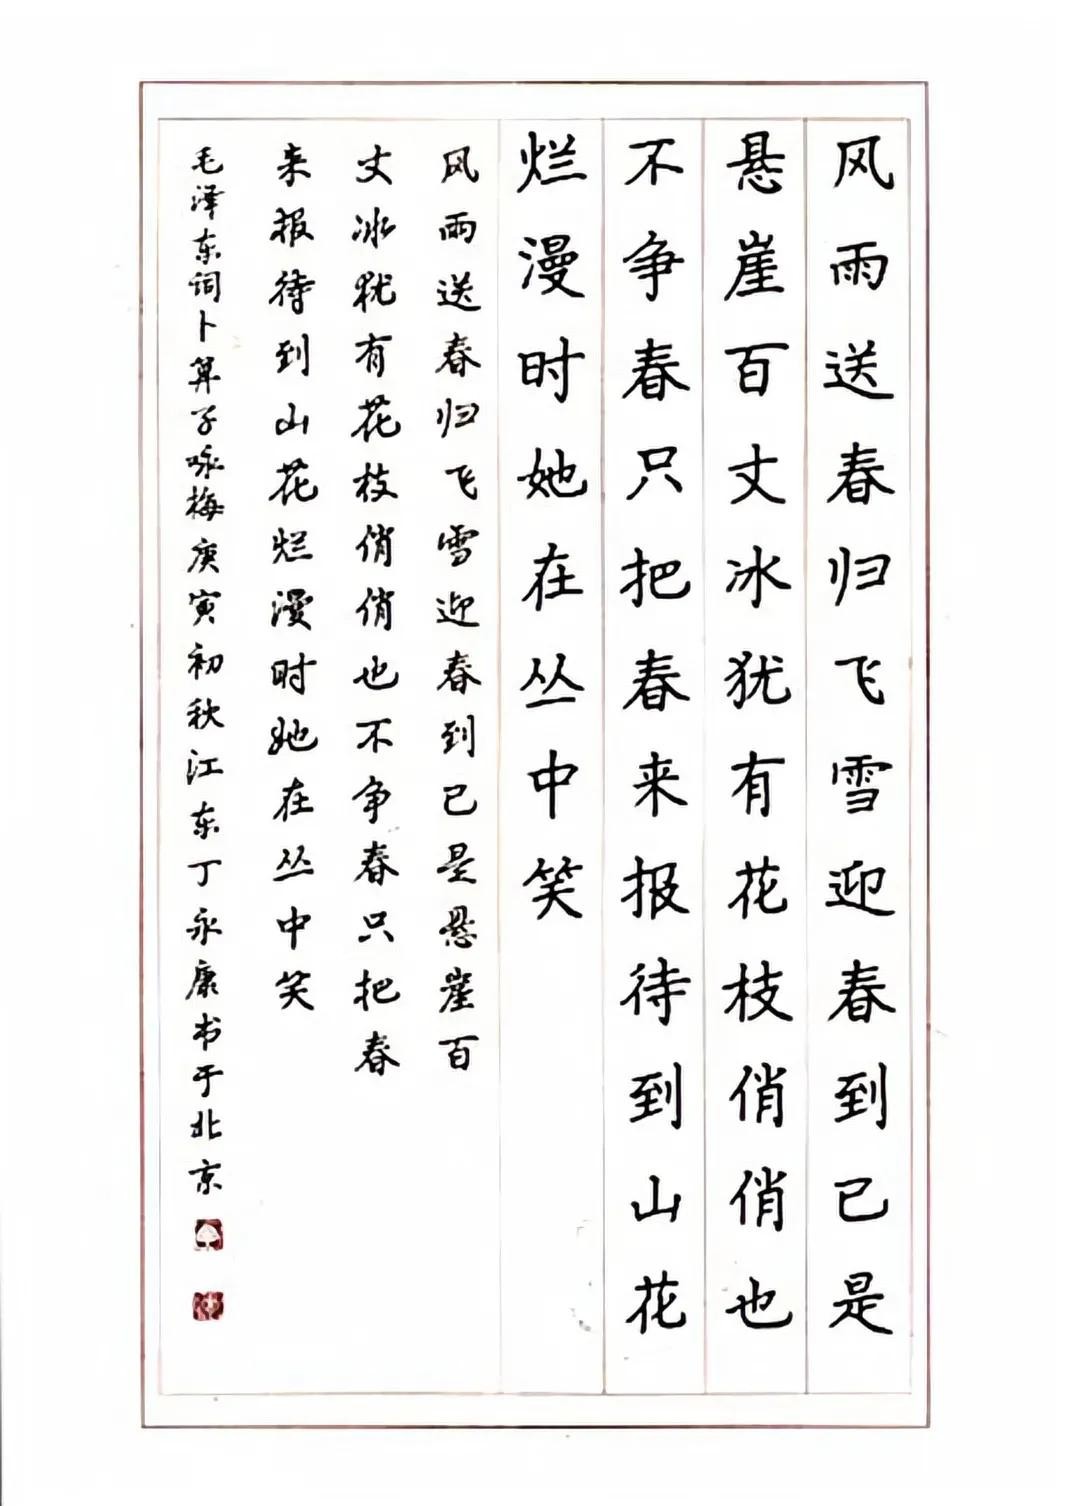 风雨送春归飞雪迎春到已是
悬崖百丈冰犹有花枝俏俏也
不争春只把春来报待到山花
烂漫时她在丛中笑
风雨送春归飞雪迎春到已是悬崖百
丈冰犹有花枝俏俏也不争春只把春
来报待到山花烂漫时她在丛中笑
毛泽东词卜算子咏梅庚寅初秋江东丁永康书于北京